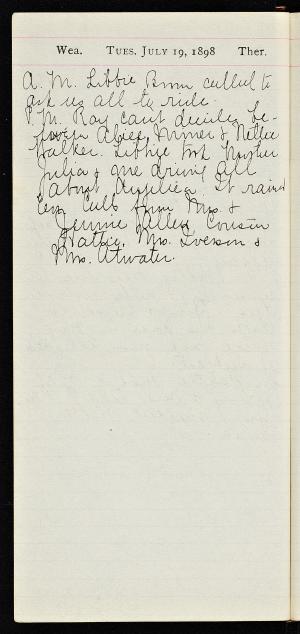 Wea. TUES. JULY 19, 1898 Ther.
A. M. Libbie Brown called to
ask us all to ride.
P. M. Ray can't decide be-
tween Abbie Miner & Nellie
Walker. Libbie took Mother
Julia & me driving all
about Auxilier. It rained
Eve. Calls from Mrs. &
Jennie Allen, Cousin
Hattie, Mrs. Iverson &
Mrs. Atwater.